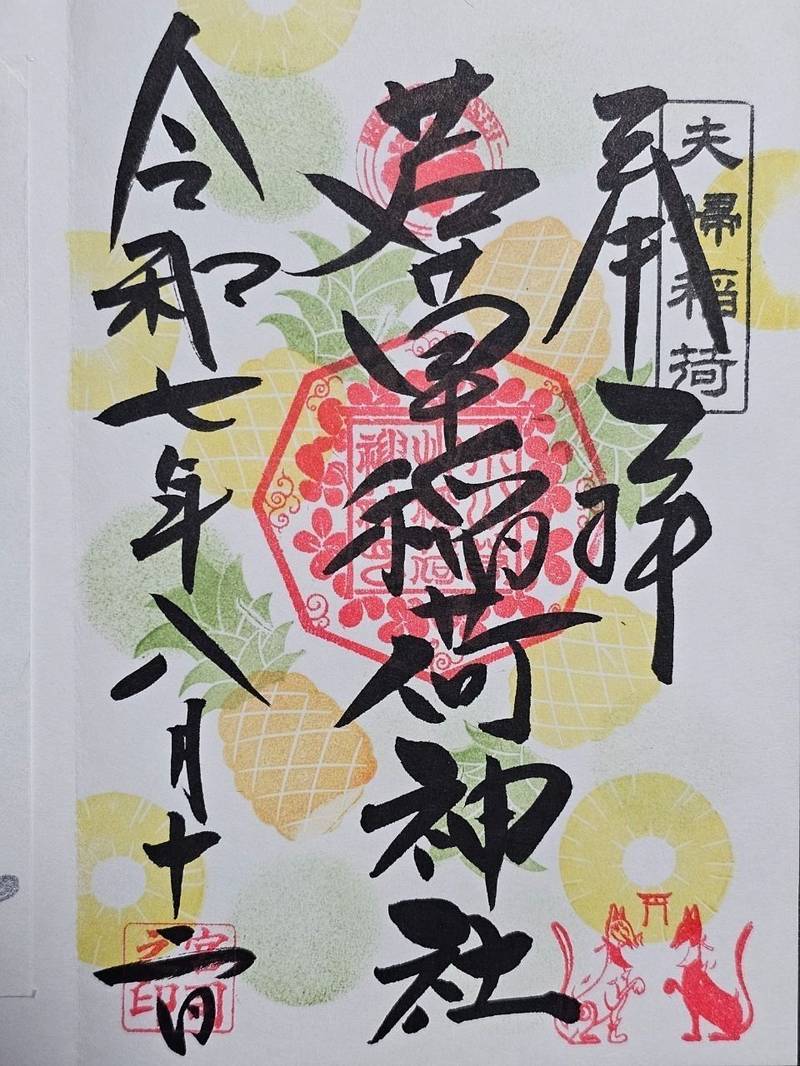 夫婦稲荷
奉拝
若草稲荷神社
令和七年八月十二日
宮司
之印